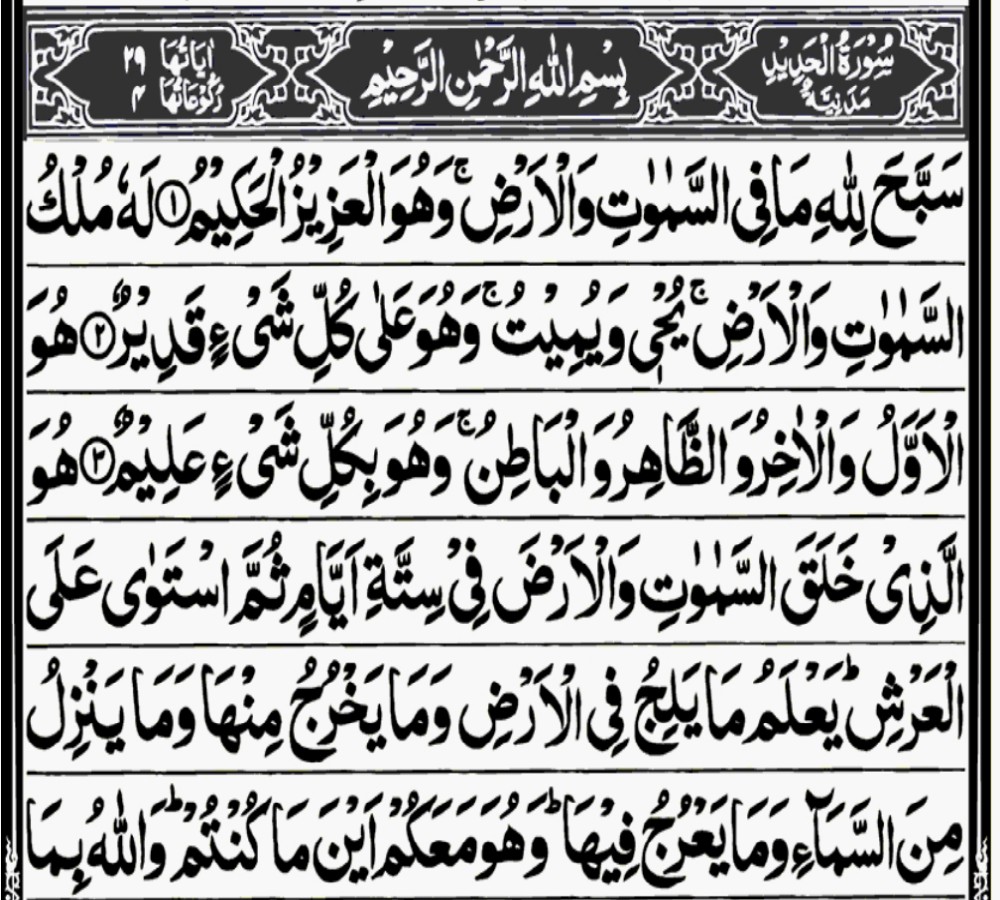 سُوْرَةُ الْحَدِيْدِ مَدَنِيَّةٌ
بِسْمِ اللّٰهِ الرَّحْمٰنِ الرَّحِيْمِ
اٰيَاتُهَا ۲۹ رُكُوْعَاتُهَا ۴
سَبَّحَ لِلّٰهِ مَا فِی السَّمٰوٰتِ وَالْاَرْضِ ۚ وَهُوَ الْعَزِيْزُ الْحَكِيْمُ ① لَهٗ مُلْكُ
السَّمٰوٰتِ وَالْاَرْضِ ۚ يُحْیٖ وَيُمِيْتُ ۚ وَهُوَ عَلٰی كُلِّ شَیْءٍ قَدِيْرٌ ② هُوَ
الْاَوَّلُ وَالْاٰخِرُ وَ الظَّاهِرُ وَ الْبَاطِنُ ۚ وَهُوَ بِكُلِّ شَیْءٍ عَلِيْمٌ ③ هُوَ
الَّذِیْ خَلَقَ السَّمٰوٰتِ وَالْاَرْضَ فِیْ سِتَّةِ اَيَّامٍ ثُمَّ اسْتَوٰی عَلَی
الْعَرْشِ ؕ يَعْلَمُ مَا يَلِجُ فِی الْاَرْضِ وَمَا يَخْرُجُ مِنْهَا وَمَا يَنْزِلُ
مِنَ السَّمَآءِ وَمَا يَعْرُجُ فِيْهَا ؕ وَهُوَ مَعَكُمْ اَيْنَ مَا كُنْتُمْ ؕ وَاللّٰهُ بِمَا